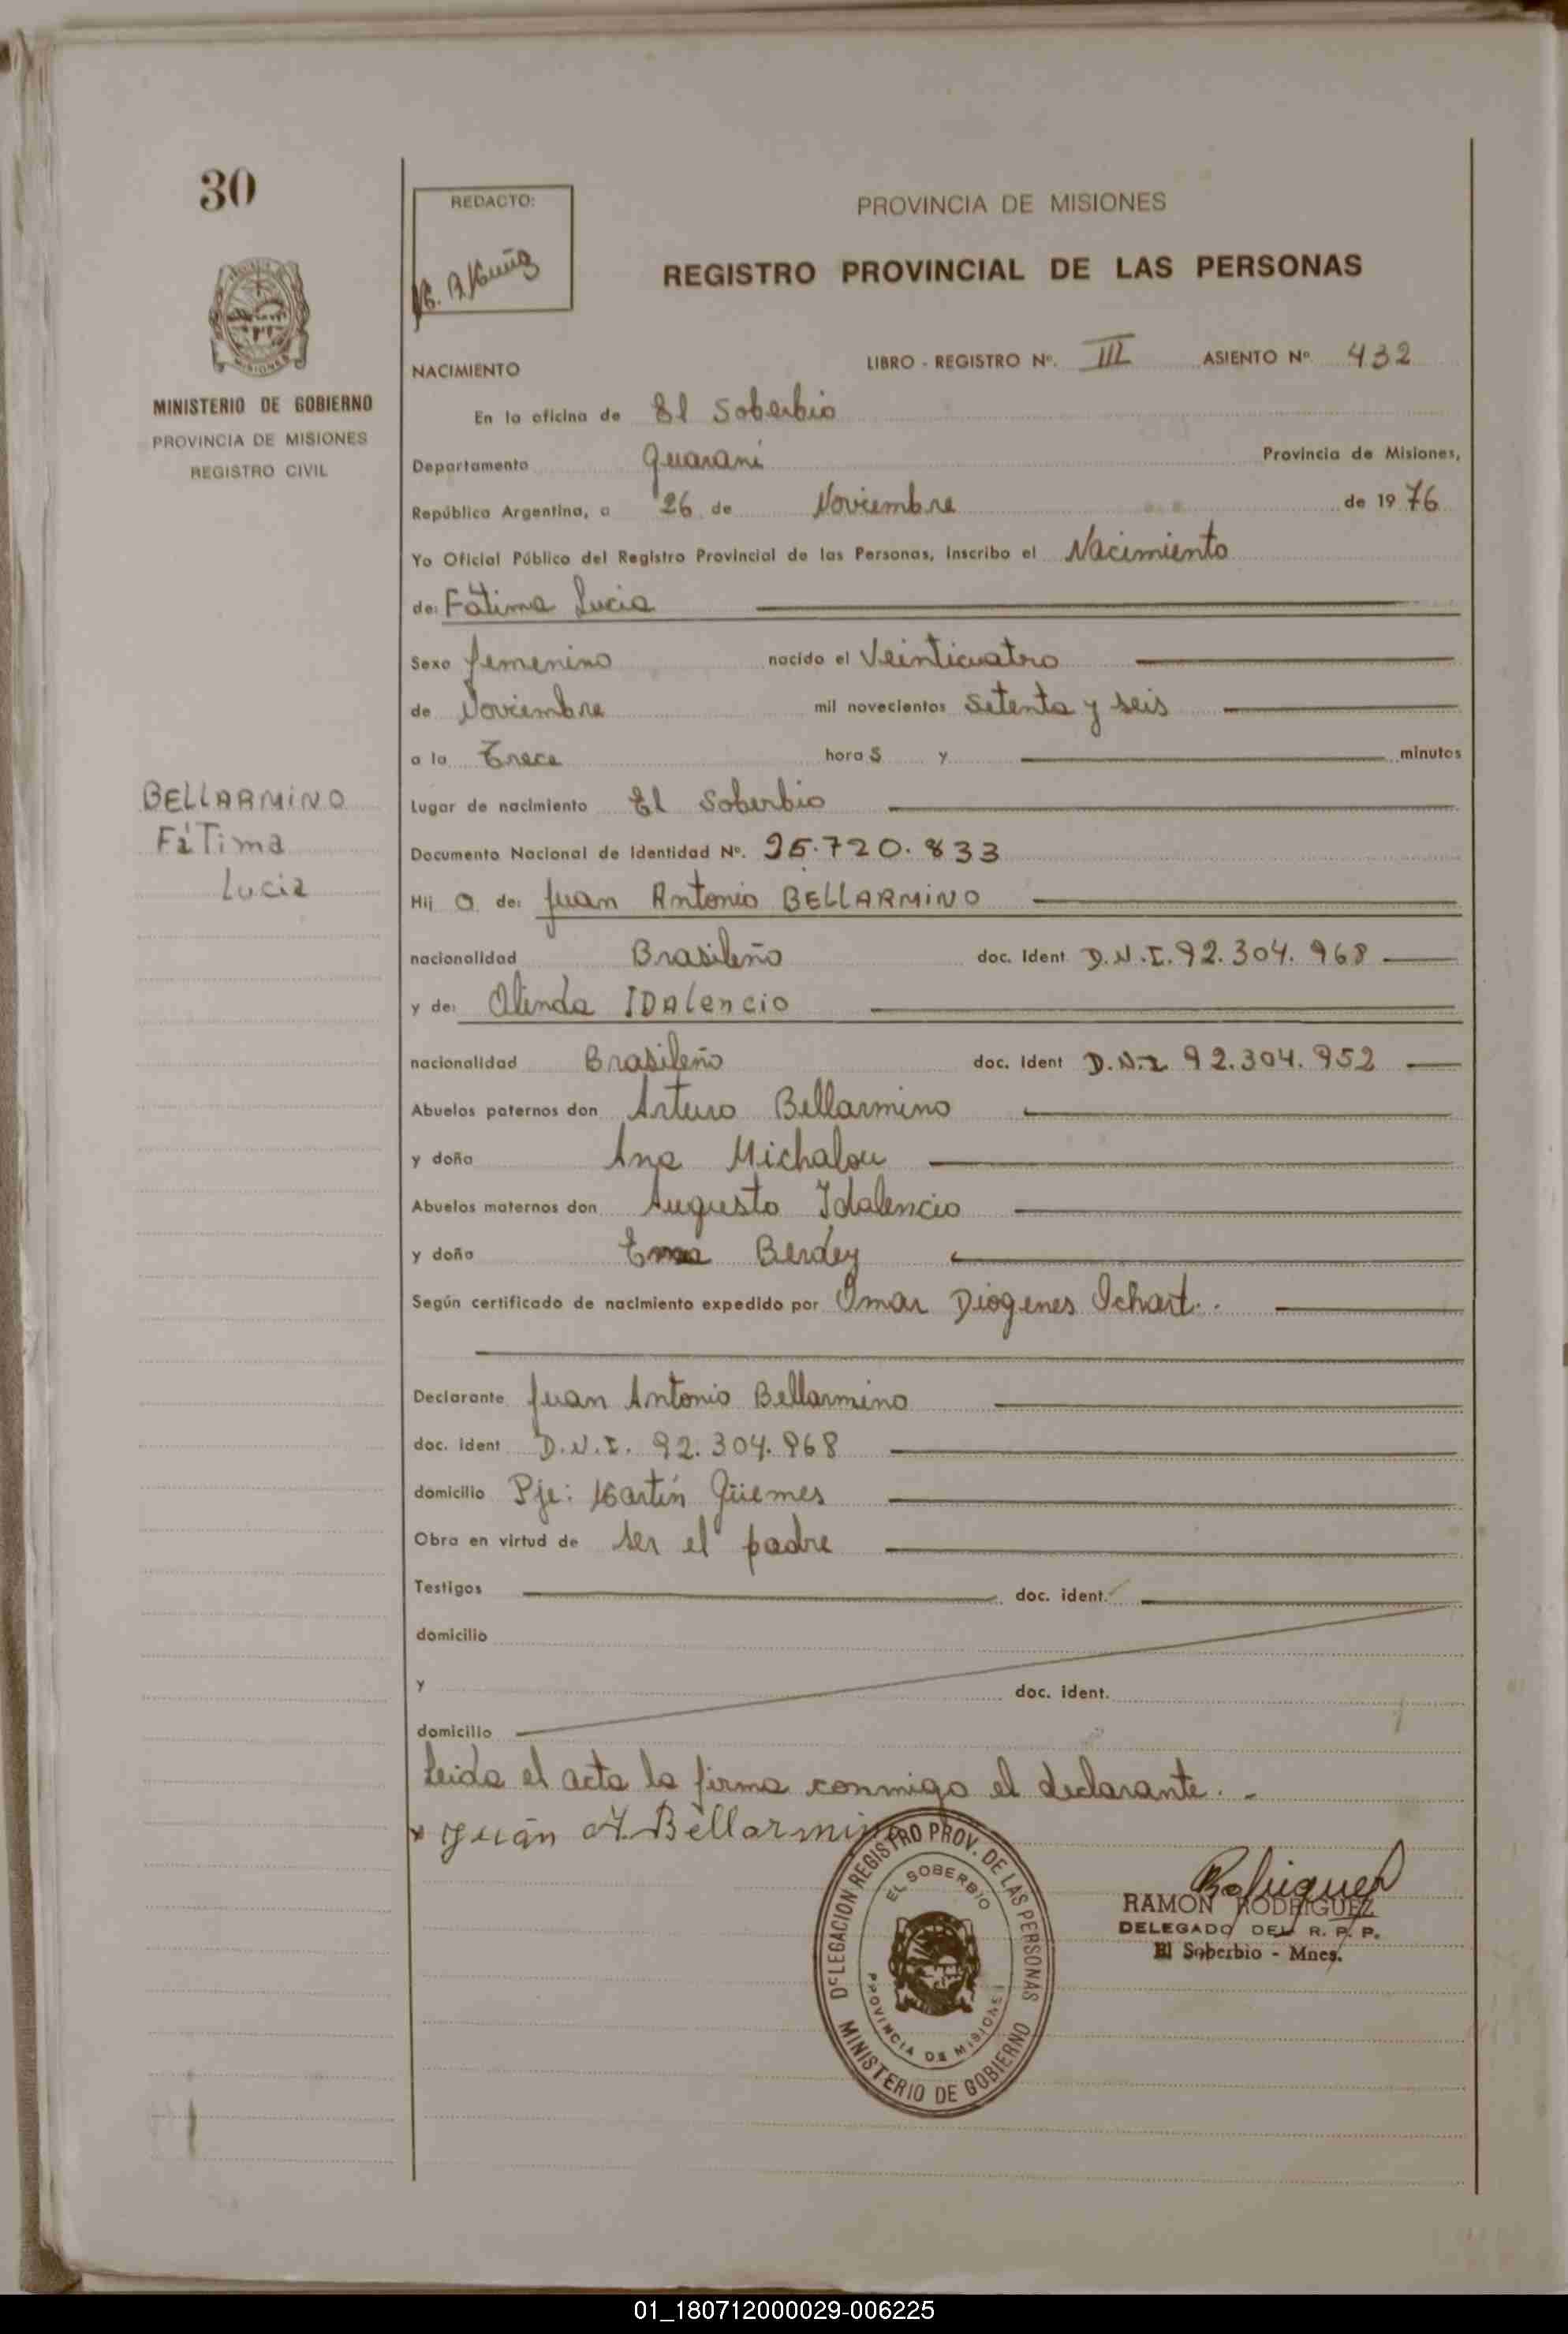 30
MINISTERIO DE GOBIERNO
PROVINCIA DE MISIONES
REGISTRO CIVIL
REDACTO:
PROVINCIA DE MISIONES
REGISTRO PROVINCIAL DE LAS PERSONAS
NACIMIENTO
LIBRO - REGISTRO Nº. III ASIENTO Nº 432
En la oficina de El Soberbio
Departamento Guaraní Provincia de Misiones,
República Argentina, a 26 de Noviembre de 19 76
Yo Oficial Público del Registro Provincial de las Personas, inscribo el Nacimiento
de: Fátima Lucia
Sexo femenino nacido el Veinticuatro
de Noviembre mil novecientos Setenta y seis
a la Trece hora s y minutos
BELLARMINO
Fátima
Lucia
Lugar de nacimiento El Soberbio
Documento Nacional de Identidad Nº. 25.720.833
Hij a de: Juan Antonio BELLARMINO
nacionalidad Brasileño doc. Ident D.N.I. 92.304.968
y de: Olinda IDALencio
nacionalidad Brasileño doc. Ident D.N.I. 92.304.952
Abuelos paternos don Arturo Bellarmino
y doña Ana Michalou
Abuelos maternos don Augusto Idalencio
y doña Ema Berdey
Según certificado de nacimiento expedido por Omar Diogenes Ichart.
Declarante Juan Antonio Bellarmino
doc. ident D.N.I. 92.304.968
domicilio Pje: Martín Güemes
Obra en virtud de ser el padre
Testigos doc. ident.
domicilio
y doc. ident.
domicilio
Leida el acta la firma conmigo el declarante. -
x Juan A. Bellarmino
DELEGACION REGISTRO PROV. DE LAS PERSONAS
EL SOBERBIO
PROVINCIA DE MISIONES
MINISTERIO DE GOBIERNO
Rodriguez
RAMON RODRIGUEZ
DELEGADO DEL R. P. P.
El Soberbio - Mnes.
01_180712000029-006225